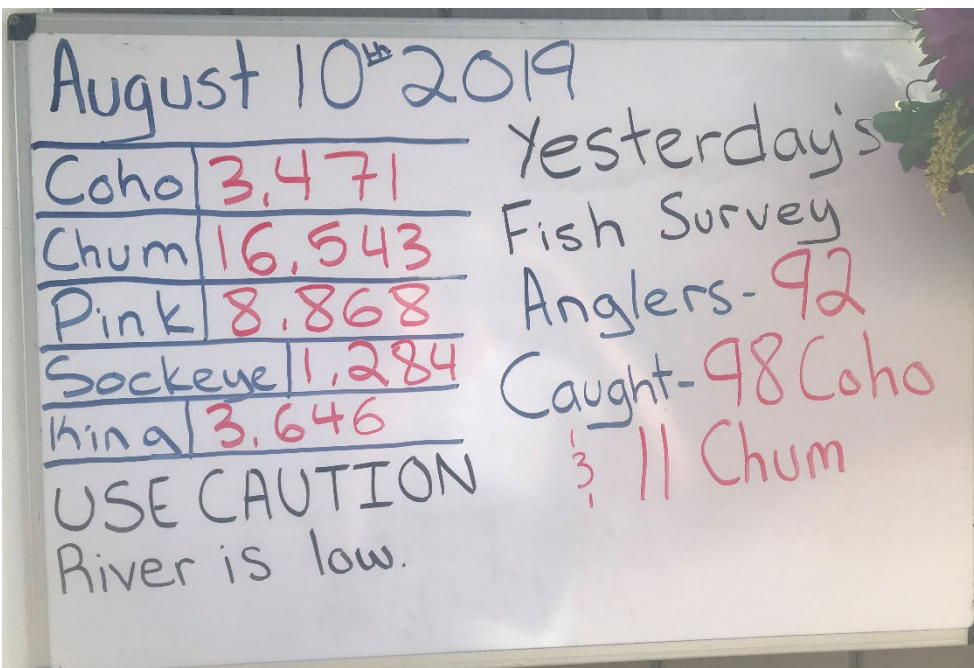 August 10th 2019
Coho 3,471
Chum 16,543
Pink 8,868
Sockeye 1,284
King 3,646
USE CAUTION
River is low.
Yesterday's
Fish Survey
Anglers- 92
Caught- 98 Coho
& 11 Chum